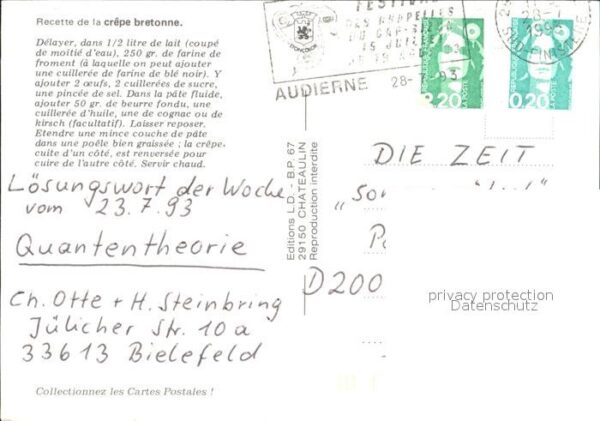 Recette de la crêpe bretonne.
Délayer, dans 1/2 litre de lait (coupé
de moitié d'eau), 250 gr. de farine de
froment (à laquelle on peut ajouter
une cuillerée de farine de blé noir). Y
ajouter 2 œufs, 2 cuillerées de sucre,
une pincée de sel. Dans la pâte fluide,
ajouter 50 gr. de beurre fondu, une
cuillerée d'huile, une de cognac ou de
kirsch (facultatif). Laisser reposer.
Etendre une mince couche de pâte
dans une poêle bien graissée ; la crêpe-
cuite d'un côté, est renversée pour
cuire de l'autre côté. Servir chaud.
Lösungswort der Woche
vom 23.7.93
Quantentheorie
Ch. Otte + H. Steinbring
Jülicher Str. 10a
33613 Bielefeld
Collectionnez les Cartes Postales !
Editions L.D. - B.P. 67
29150 CHATEAULIN
Reproduction interdite
FESTIVITES
AUDIERNE 28-7-93
2,20
0,20
28-7
1993
DIE ZEIT
D200
privacy protection
Datenschutz